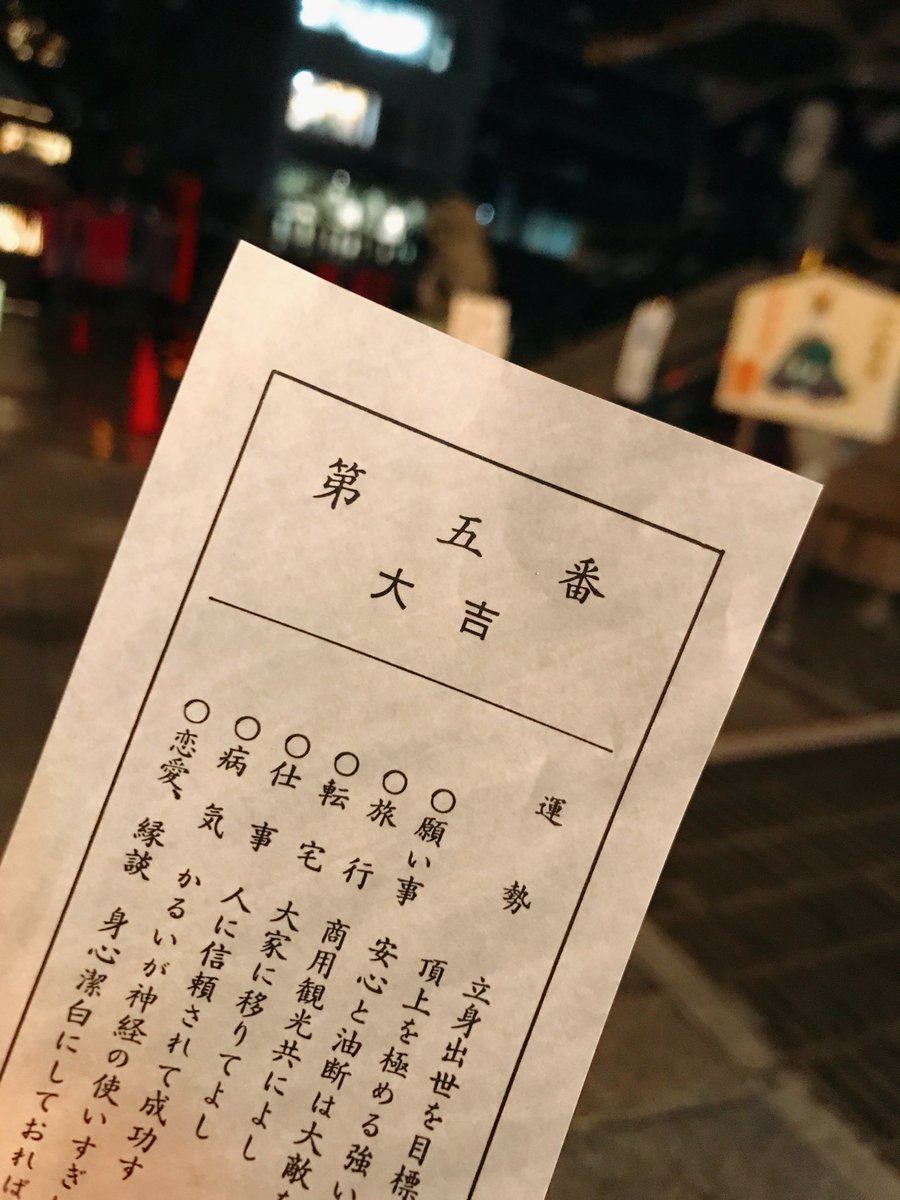 第五番
大吉
運勢 立身出世を目標
頂上を極める強い
○願い事 安心と油断は大敵
○旅行 商用観光共によし
○転宅 大家に移りてよし
○仕事 人に信頼されて成功す
○病気 かるいが神経の使いすぎ
○恋愛、縁談 身心潔白にしておれば